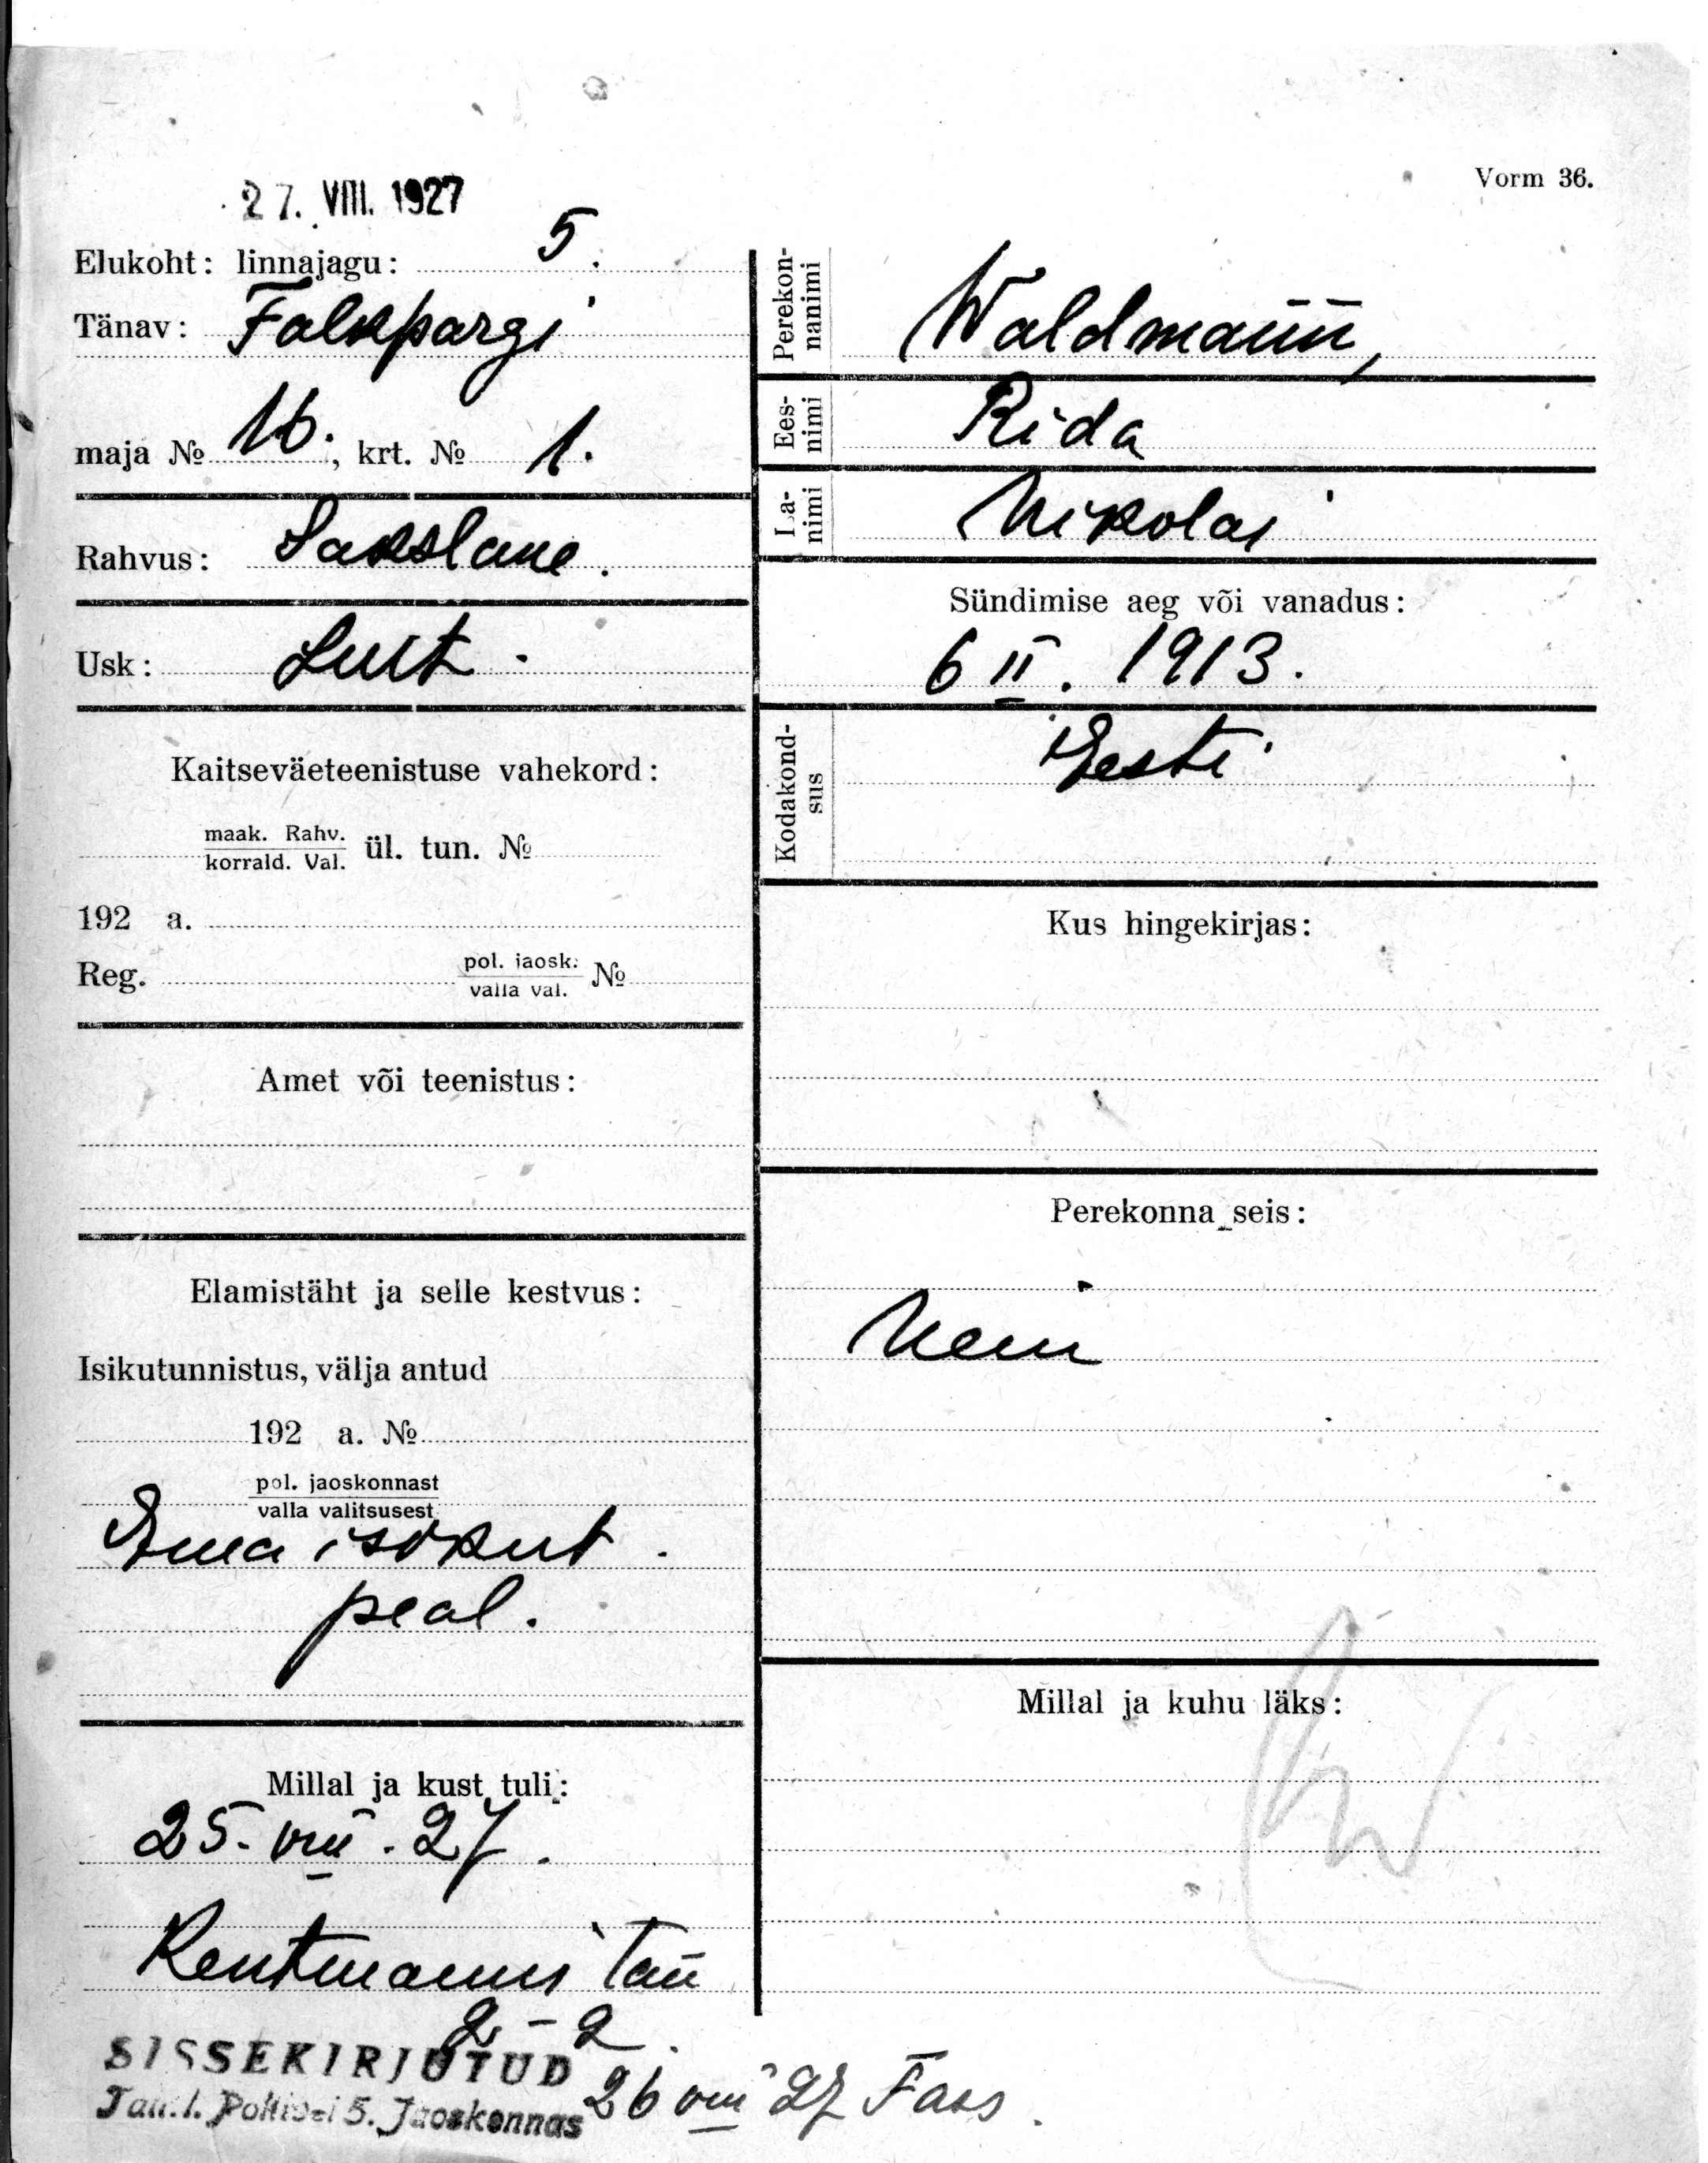 27. VIII. 1927
Vorm 36.
Elukoht: linnajagu: 5.
Tänav: Falkpargi
maja № 16., krt. № 1.
Rahvus: Sakslane.
Usk: Lut.
Kaitseväeteenistuse vahekord:
maak. Rahv.
korrald. Val. ül. tun. №
192 a.
Reg. pol. jaosk.
valla val. №
Amet või teenistus:
Elamistäht ja selle kestvus:
Isikutunnistus, välja antud
192 a. №
pol. jaoskonnast
valla valitsusest
Ema isikut.
peal.
Millal ja kust tuli:
25. VIII. 27.
Kentmanni tän
2-2.
SISSEKIRJUTUD
Tall. l. Politsei 5. Jaoskonnas
26 VIII 27
Perekonnanimi Waldmann,
Eesnimi Rida
Lanimi Nikolai
Sündimise aeg või vanadus:
6 II. 1913.
Kodakondsus Eesti
Kus hingekirjas:
Perekonna seis:
Neiu
Millal ja kuhu läks: